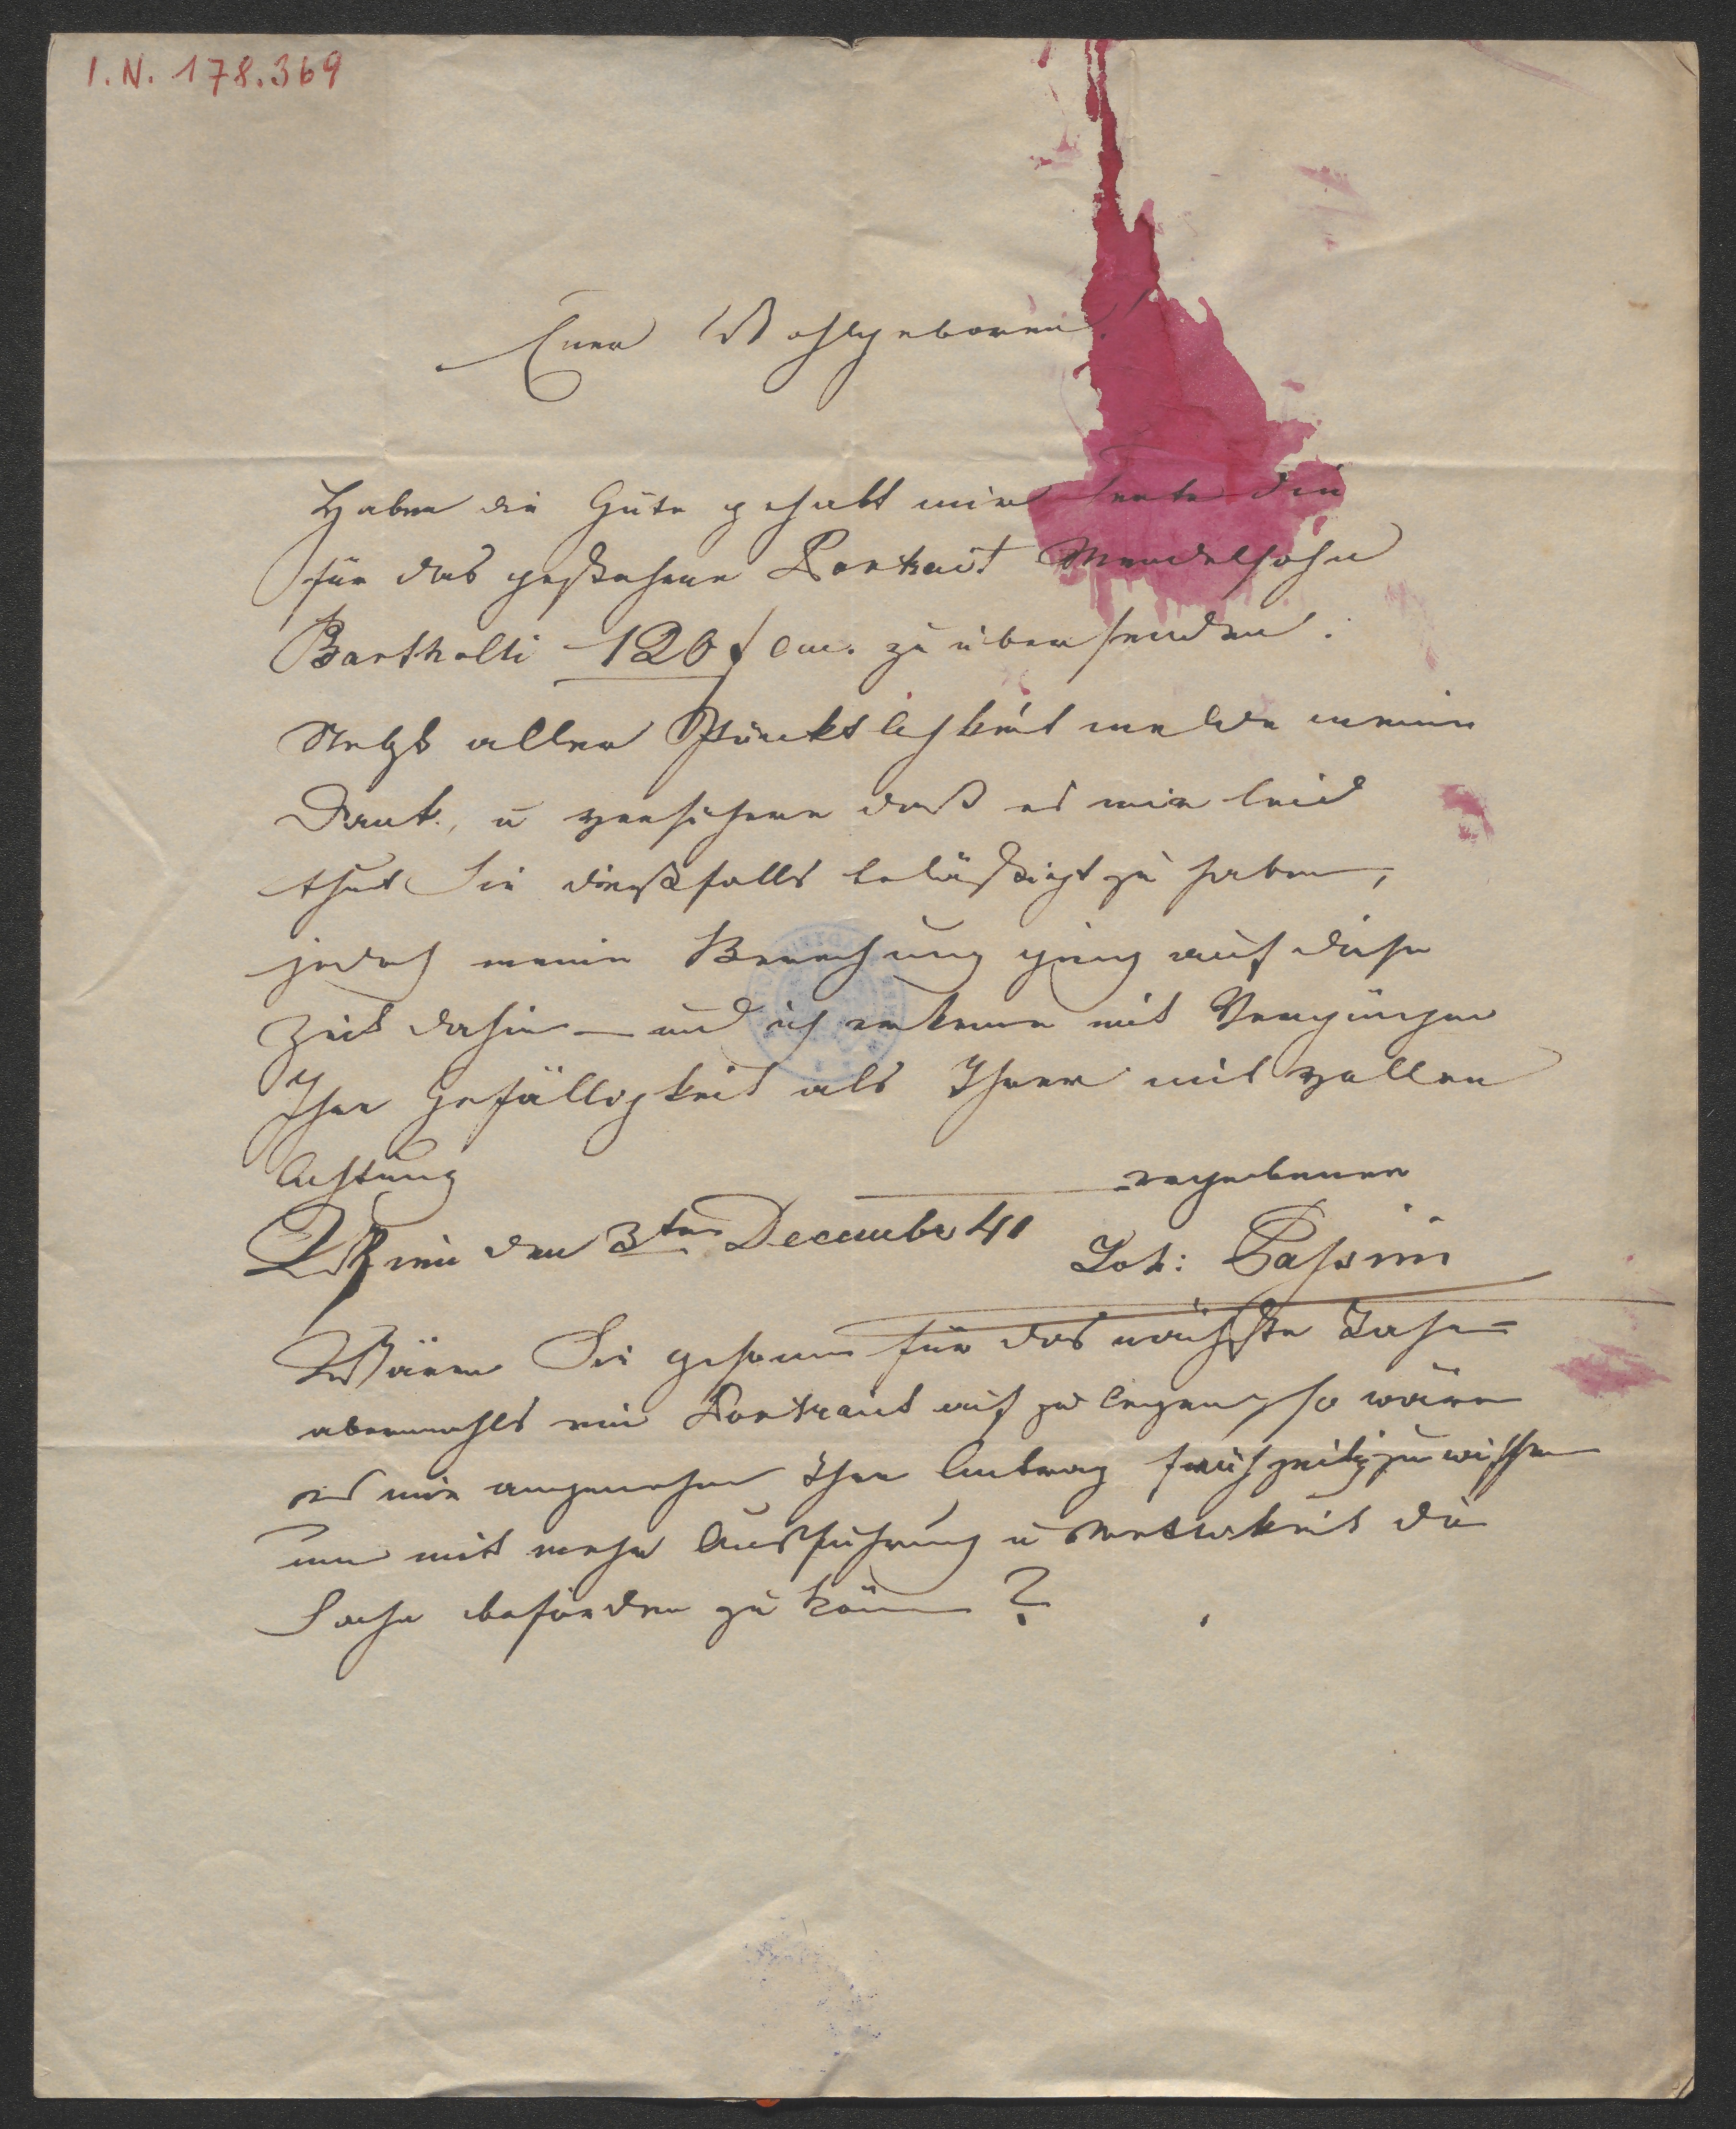 I.N. 178.369
Euer Wohlgeboren!
Haben die Güte gehabt mir heute die
für das gestochene Portrait Mendelsohn
Bartholti 120 f Cm. zu übersenden.
Nebst aller Pünktlichkeit melde meinen
Dank, u versichere daß es mir leid
thut Sie dießfalls belästigt zu haben,
jedoch meine Berechnung ging auf diese
Zeit dahin – und ich erkenne mit Vergnügen
Ihre Gefälligkeit als Ihrer mit vollen
Achtung
ergebener
Wien den 3ten December 41 Joh: Passini
Wären Sie gesonnen für das nächste Jahr
abermahls ein Portrait auf zu legen, so wäre
es mir angenehm Ihre Antrag frühzeitig zu wissen
um mit mehr Ausführung u die
Sache befördern zu können ?